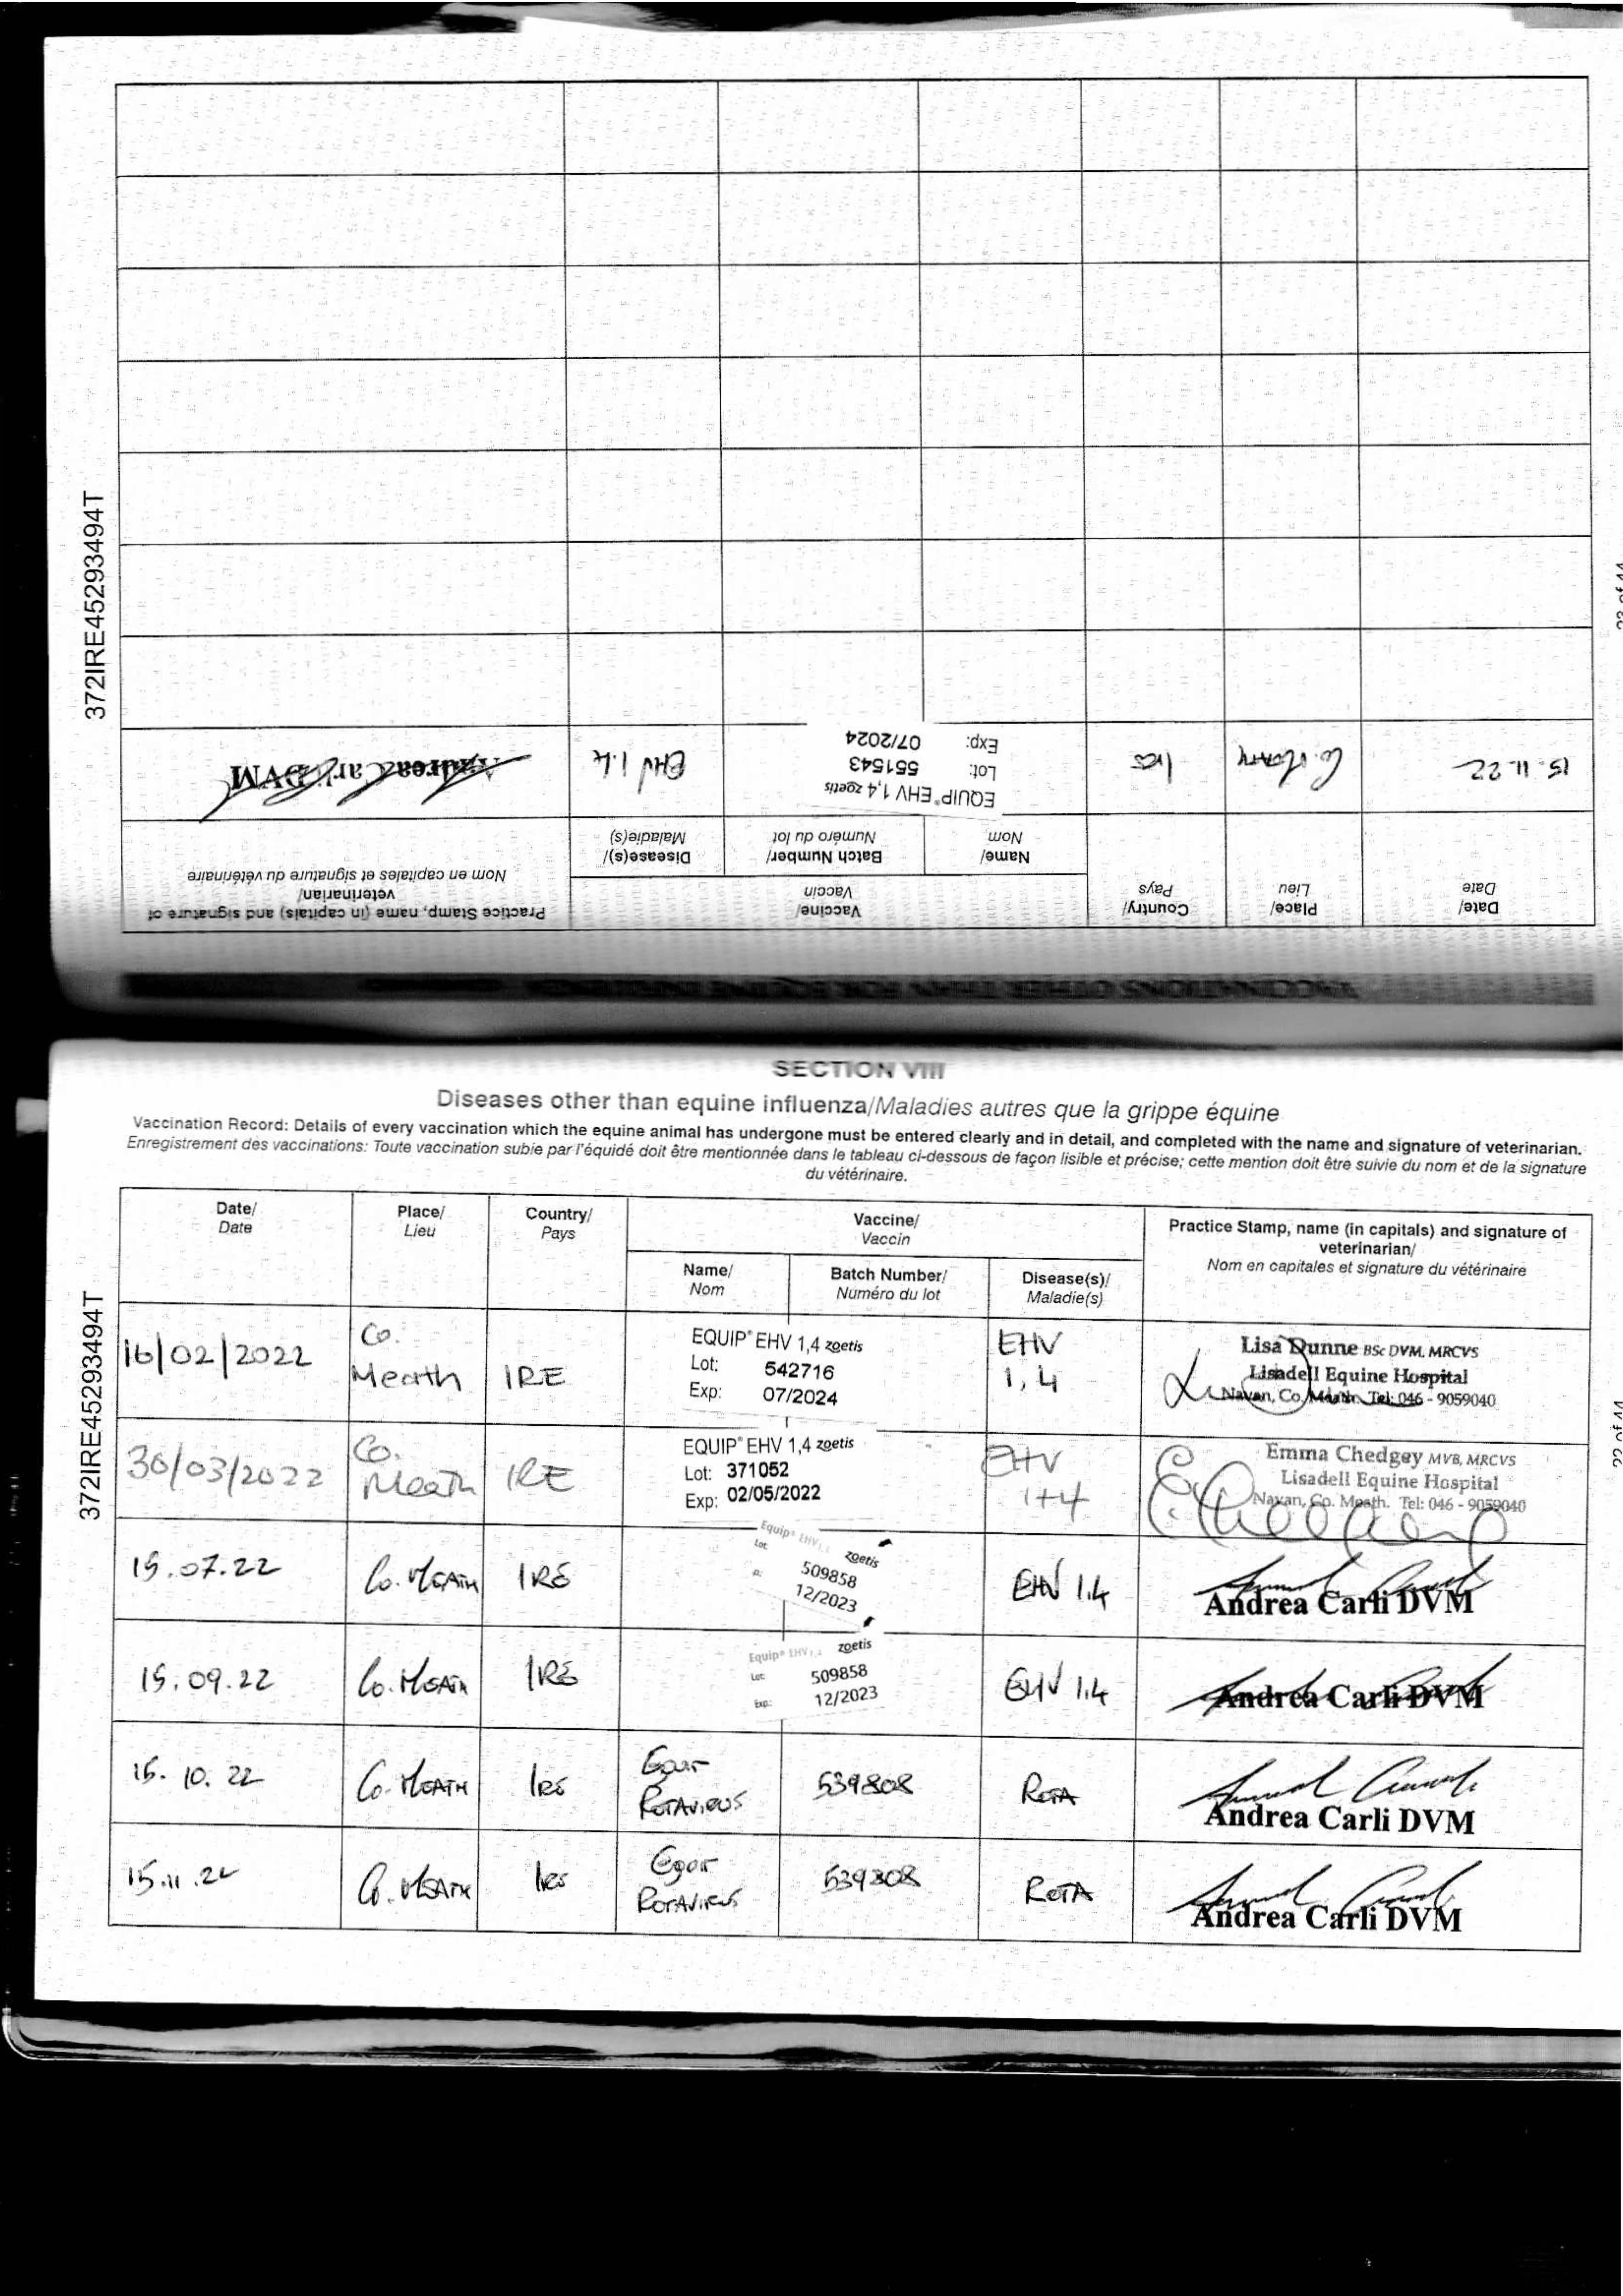 372IRE45293494T
VACCINATIONS OTHER THAN FOR EQUINE INFLUENZA
Date/
Date
Place/
Lieu
Country/
Pays
Vaccine/
Vaccin
Name/
Nom
Batch Number/
Numéro du lot
Disease(s)/
Maladie(s)
Practice Stamp, name (in capitals) and signature of
veterinarian/
Nom en capitales et signature du vétérinaire
15.11.22
Co. Meath
IRE
EQUIP® EHV 1,4 zoetis
Lot: 551543
Exp: 07/2024
EHV 1.4
Andrea Carli DVM
23 of 44
SECTION VIII
Diseases other than equine influenza/Maladies autres que la grippe équine
Vaccination Record: Details of every vaccination which the equine animal has undergone must be entered clearly and in detail, and completed with the name and signature of veterinarian.
Enregistrement des vaccinations: Toute vaccination subie par l'équidé doit être mentionnée dans le tableau ci-dessous de façon lisible et précise; cette mention doit être suivie du nom et de la signature
du vétérinaire.
Date/
Date
Place/
Lieu
Country/
Pays
Vaccine/
Vaccin
Name/
Nom
Batch Number/
Numéro du lot
Disease(s)/
Maladie(s)
Practice Stamp, name (in capitals) and signature of
veterinarian/
Nom en capitales et signature du vétérinaire
372IRE45293494T
16/02/2022
Co.
Meath
IRE
EQUIP® EHV 1,4 zoetis
Lot: 542716
Exp: 07/2024
EHV
1,4
Lisa Dunne BSc DVM. MRCVS
Lisadell Equine Hospital
Navan, Co. Meath. Tel: 046 - 9059040
30/03/2022
Co.
Meath
IRE
EQUIP® EHV 1,4 zoetis
Lot: 371052
Exp: 02/05/2022
EHV
1+4
Emma Chedgey MVB, MRCVS
Lisadell Equine Hospital
Navan, Co. Meath. Tel: 046 - 9059040
15.07.22
Co. MEATH
IRE
Equip® EHV 1,4 zoetis
Lot: 509858
12/2023
EHV 1.4
Andrea Carli DVM
15.09.22
Co. MEATH
IRE
Equip® EHV 1,4 zoetis
Lot: 509858
Exp.: 12/2023
EHV 1.4
Andrea Carli DVM
15.10.22
Co. MEATH
IRE
ROTAVIRUS
539808
ROTA
Andrea Carli DVM
15.11.22
Co. MEATH
IRE
ROTAVIRUS
539808
ROTA
Andrea Carli DVM
22 of 44